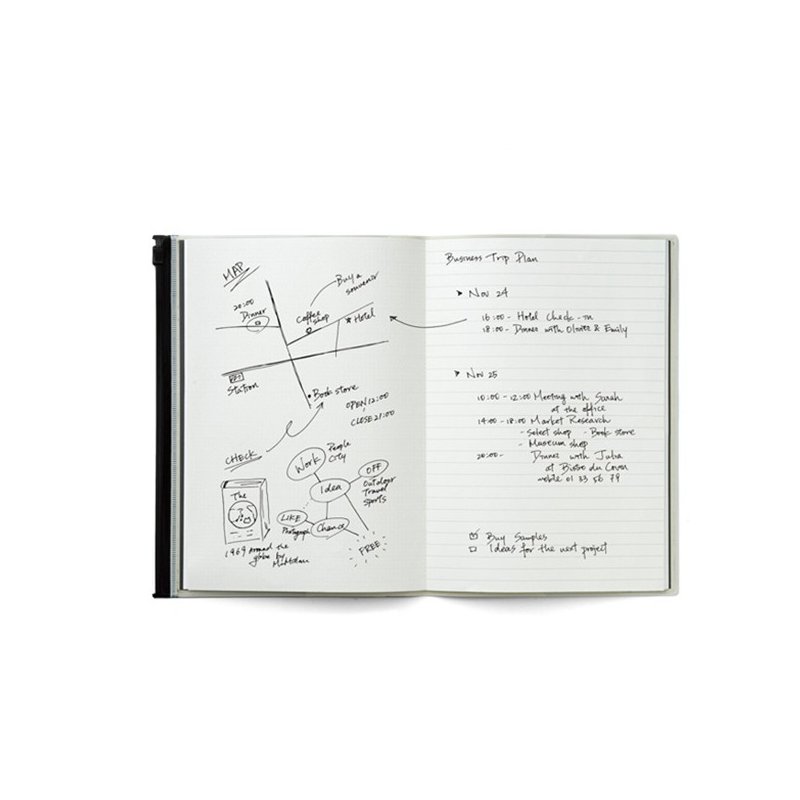 MAP
Buy a
souvenir
20:00
Dinner
Coffee
shop
Hotel
Station
Book store
OPEN 12:00
CLOSE 21:00
CHECK
People
City
Work
OFF
Idea
Outdoor
Travel
Sports
LIKE
Photograph
Chance
FREE
The
1969 Around the
globe by
Business Trip Plan
Nov 24
16:00 - Hotel Check-in
18:00 - Dinner with Olivier & Emily
Nov 25
10:00 - 12:00 Meeting with Sarah
at the office
14:00 - 18:00 Market Research
- Select shop - Book store
- Museum shop
20:00 - Dinner with Julia
at Bistro du
mobile 01 33 56 79
Buy Samples
Ideas for the next project